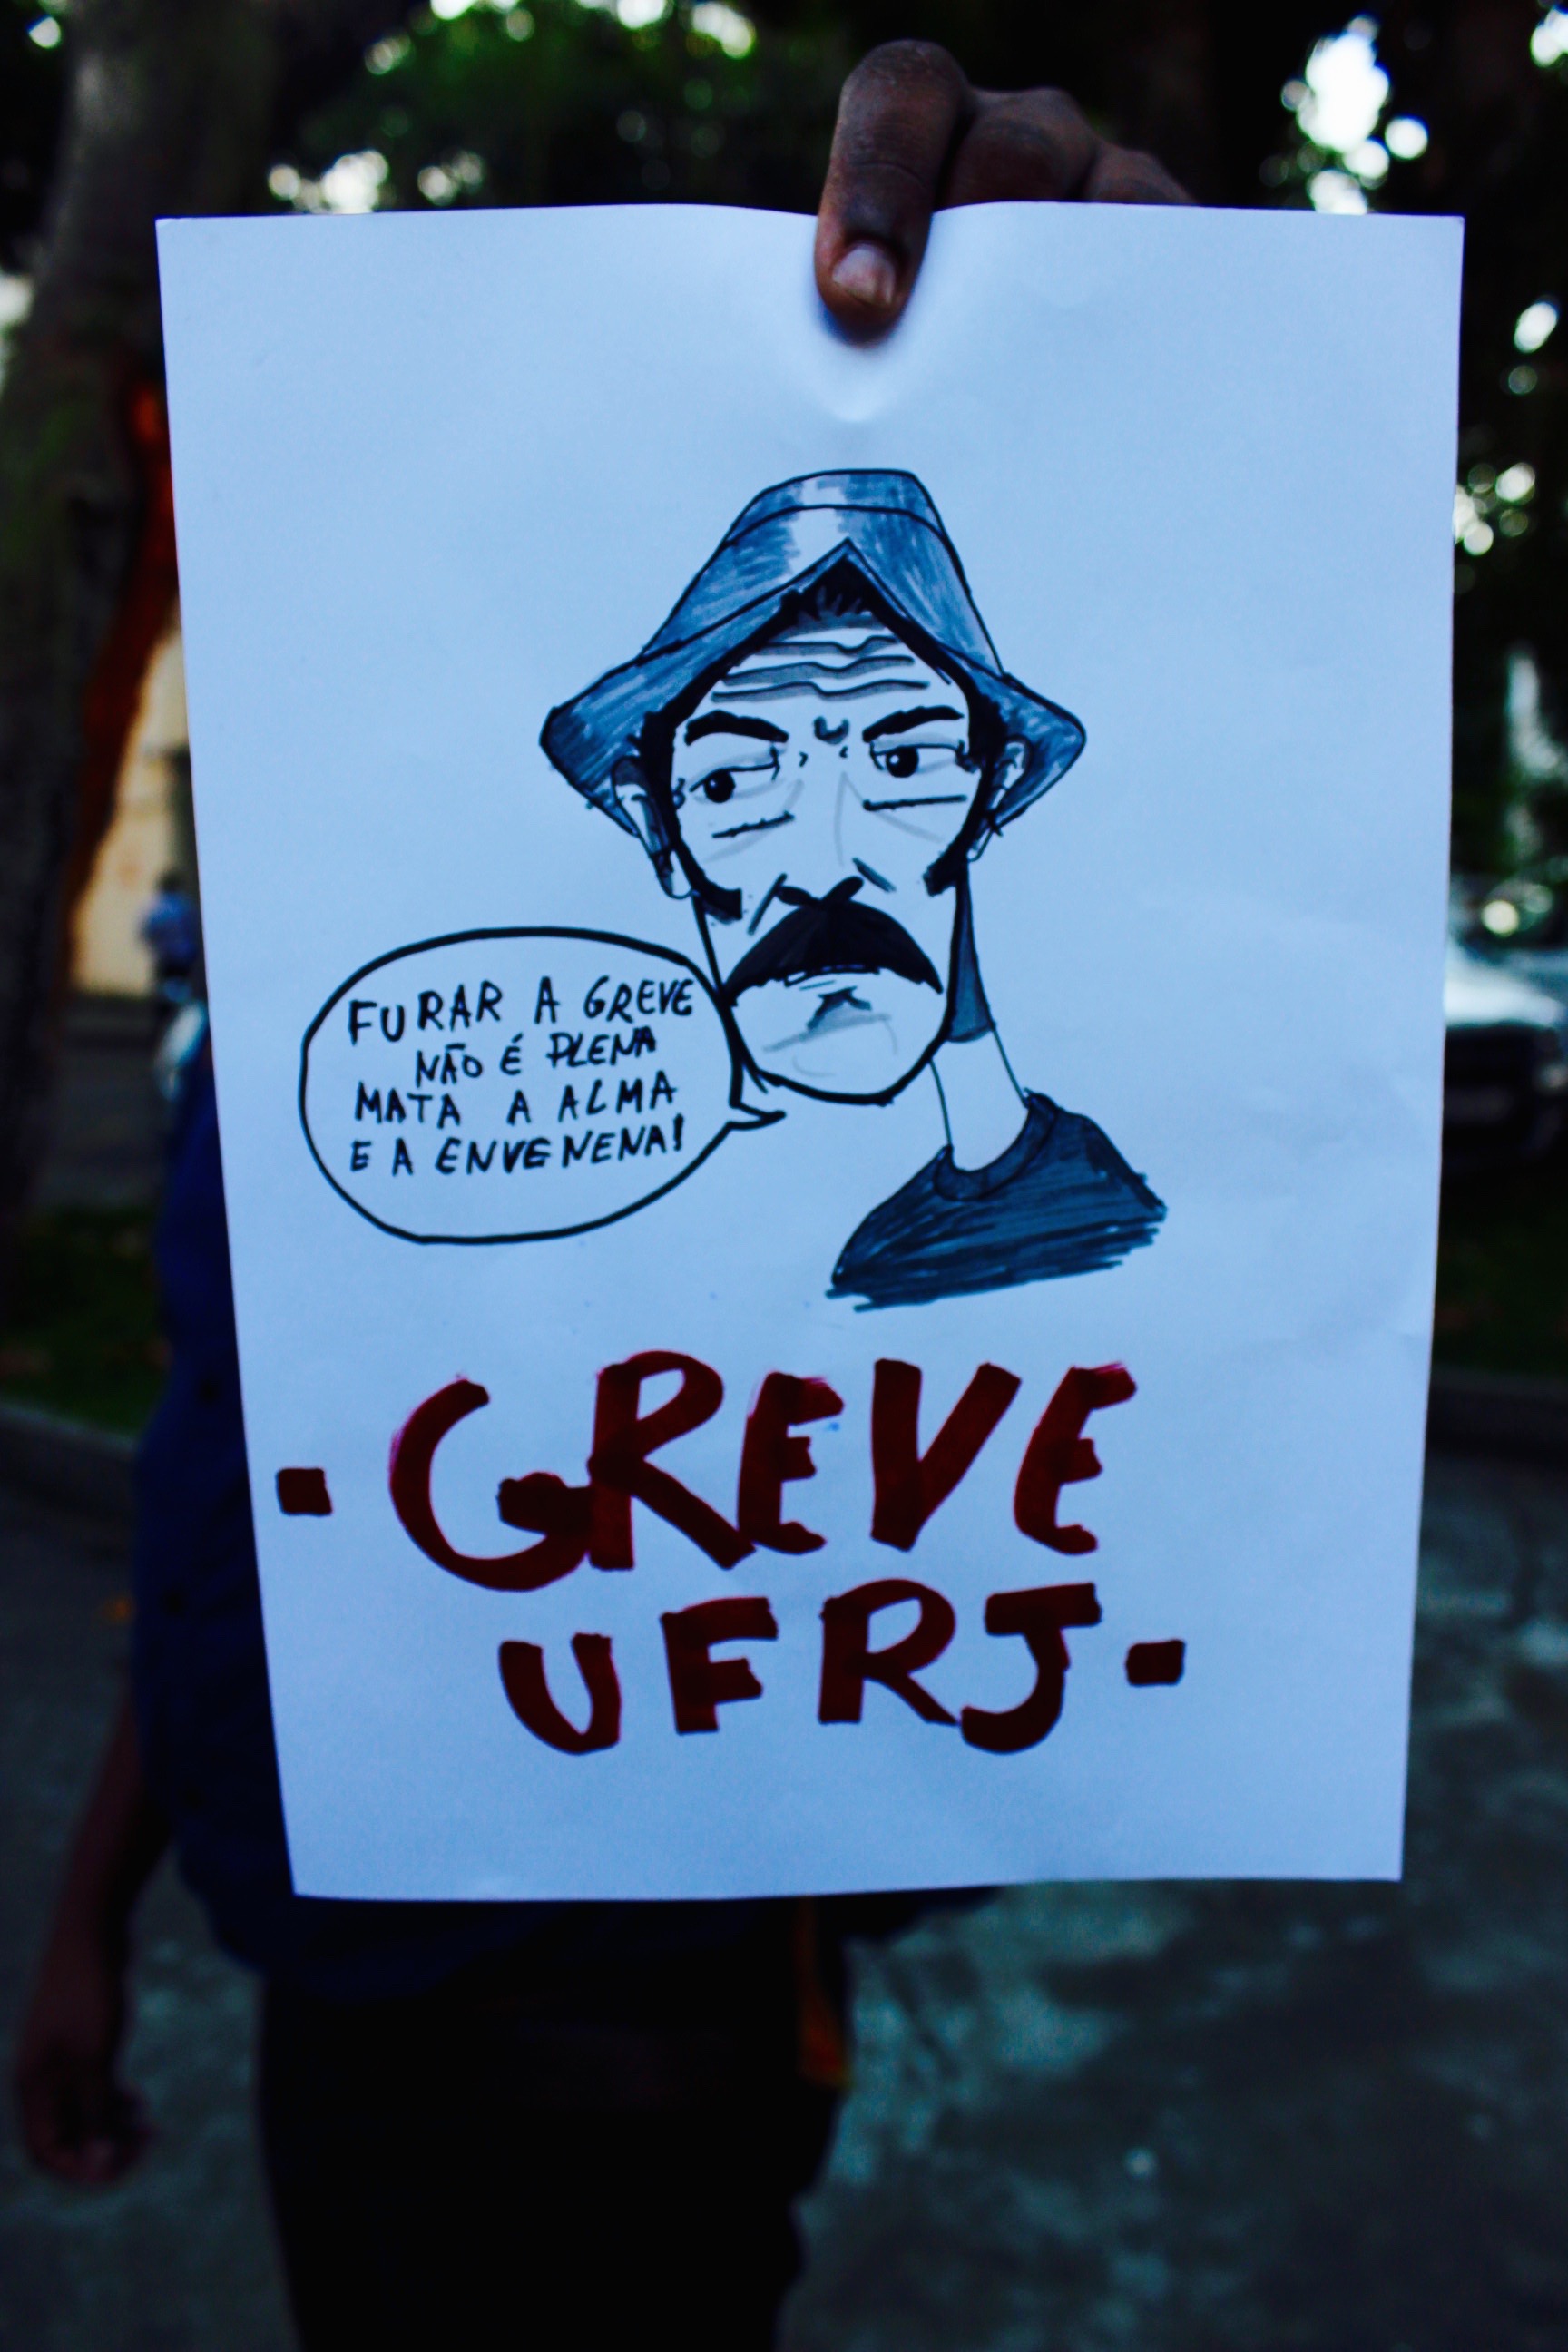 FURAR A GREVE
NÃO É PLENA
MATA A ALMA
E A ENVENENA!
- GREVE
UFRJ -